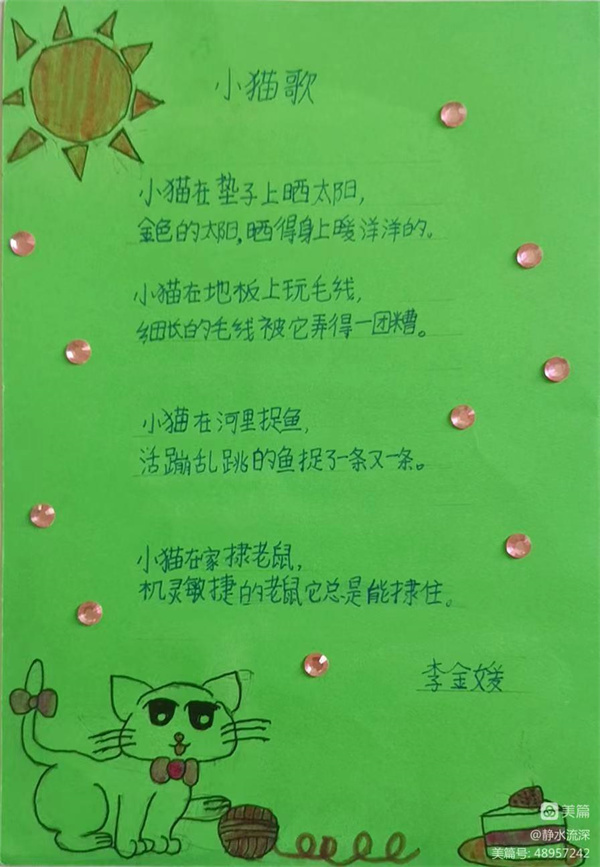 小猫歌
小猫在垫子上晒太阳，
金色的太阳，晒得身上暖洋洋的。
小猫在地板上玩毛线，
细长的毛线被它弄得一团糟。
小猫在河里捉鱼，
活蹦乱跳的鱼捉了一条又一条。
小猫在家捸老鼠，
机灵敏捷的老鼠它总是能捸住。
李金媛
美篇
@静水流深
美篇号: 48957242